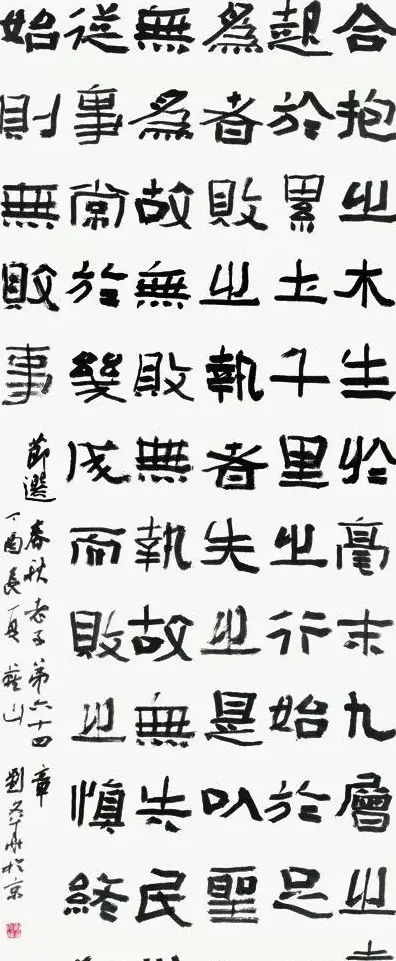 合抱之木生於毫末九層之
起於累土千里之行始於足
爲者敗之執者失之是以聖
無爲故無敗無執故無失民
從事常於幾成而敗之慎終
始則無敗事
節選春秋老子第六十四章
丁酉長夏 山 劉 於京